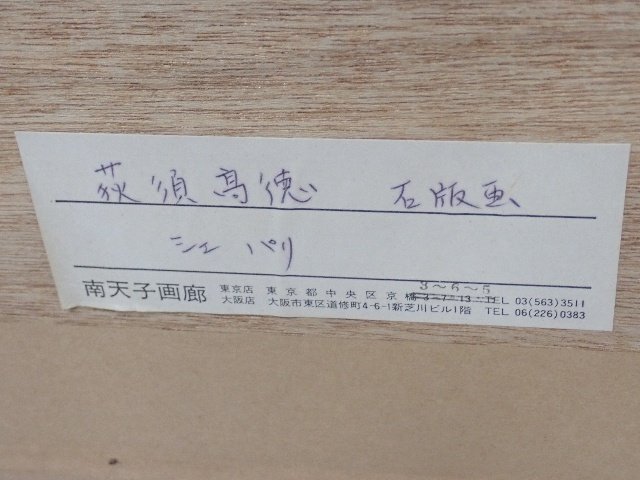 荻須高徳 石版画
シェ パリ
3〜6〜5
南天子画廊 東京店 東京都中央区京橋3-7-13 TEL 03(563)3511
大阪店 大阪市東区道修町4-6-1新芝川ビル1階 TEL 06(226)0383